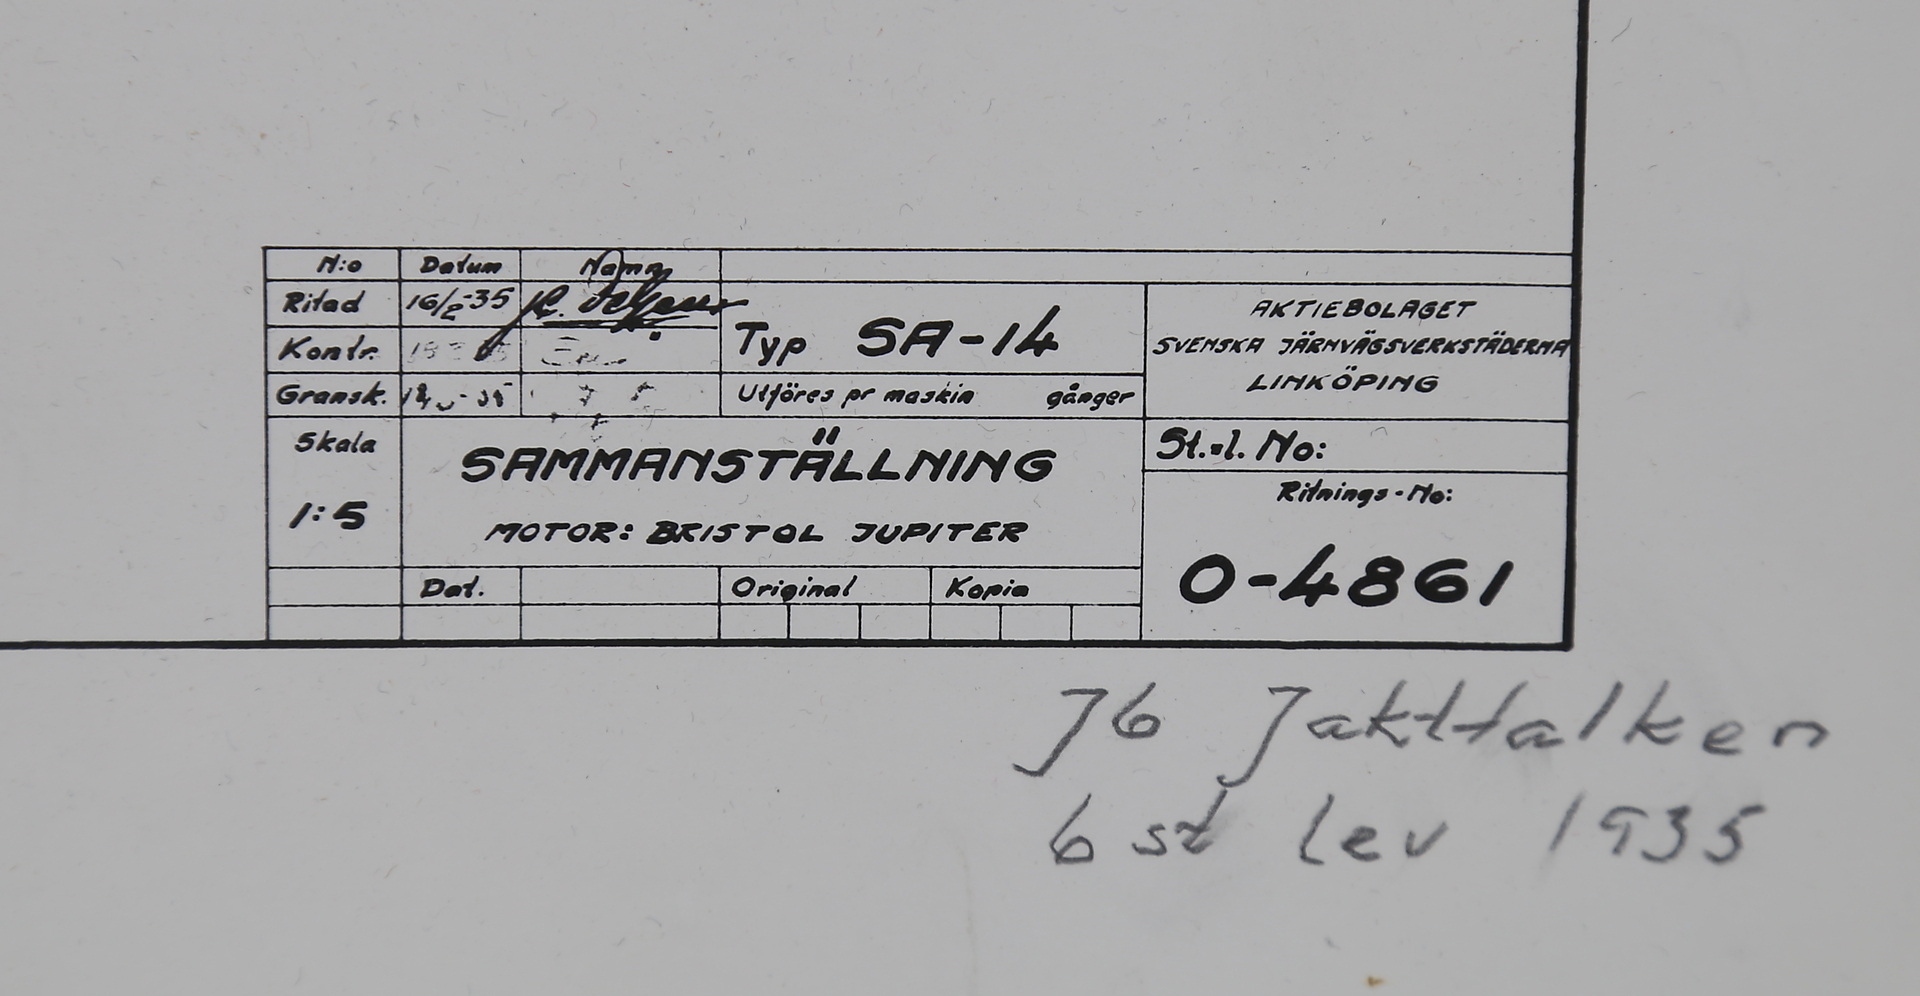 N:o Datum Namn
Ritad 16/2-35
Kontr.
Gransk.
Typ SA-14
Utföres pr maskin gånger
AKTIEBOLAGET
SVENSKA JÄRNVÄGSVERKSTÄDERNA
LINKÖPING
Skala
1:5
SAMMANSTÄLLNING
MOTOR: BRISTOL JUPITER
St.-l. No:
Ritnings-No:
O-4861
Dat. Original Kopia
J6 Jaktfalken
6 st lev 1935